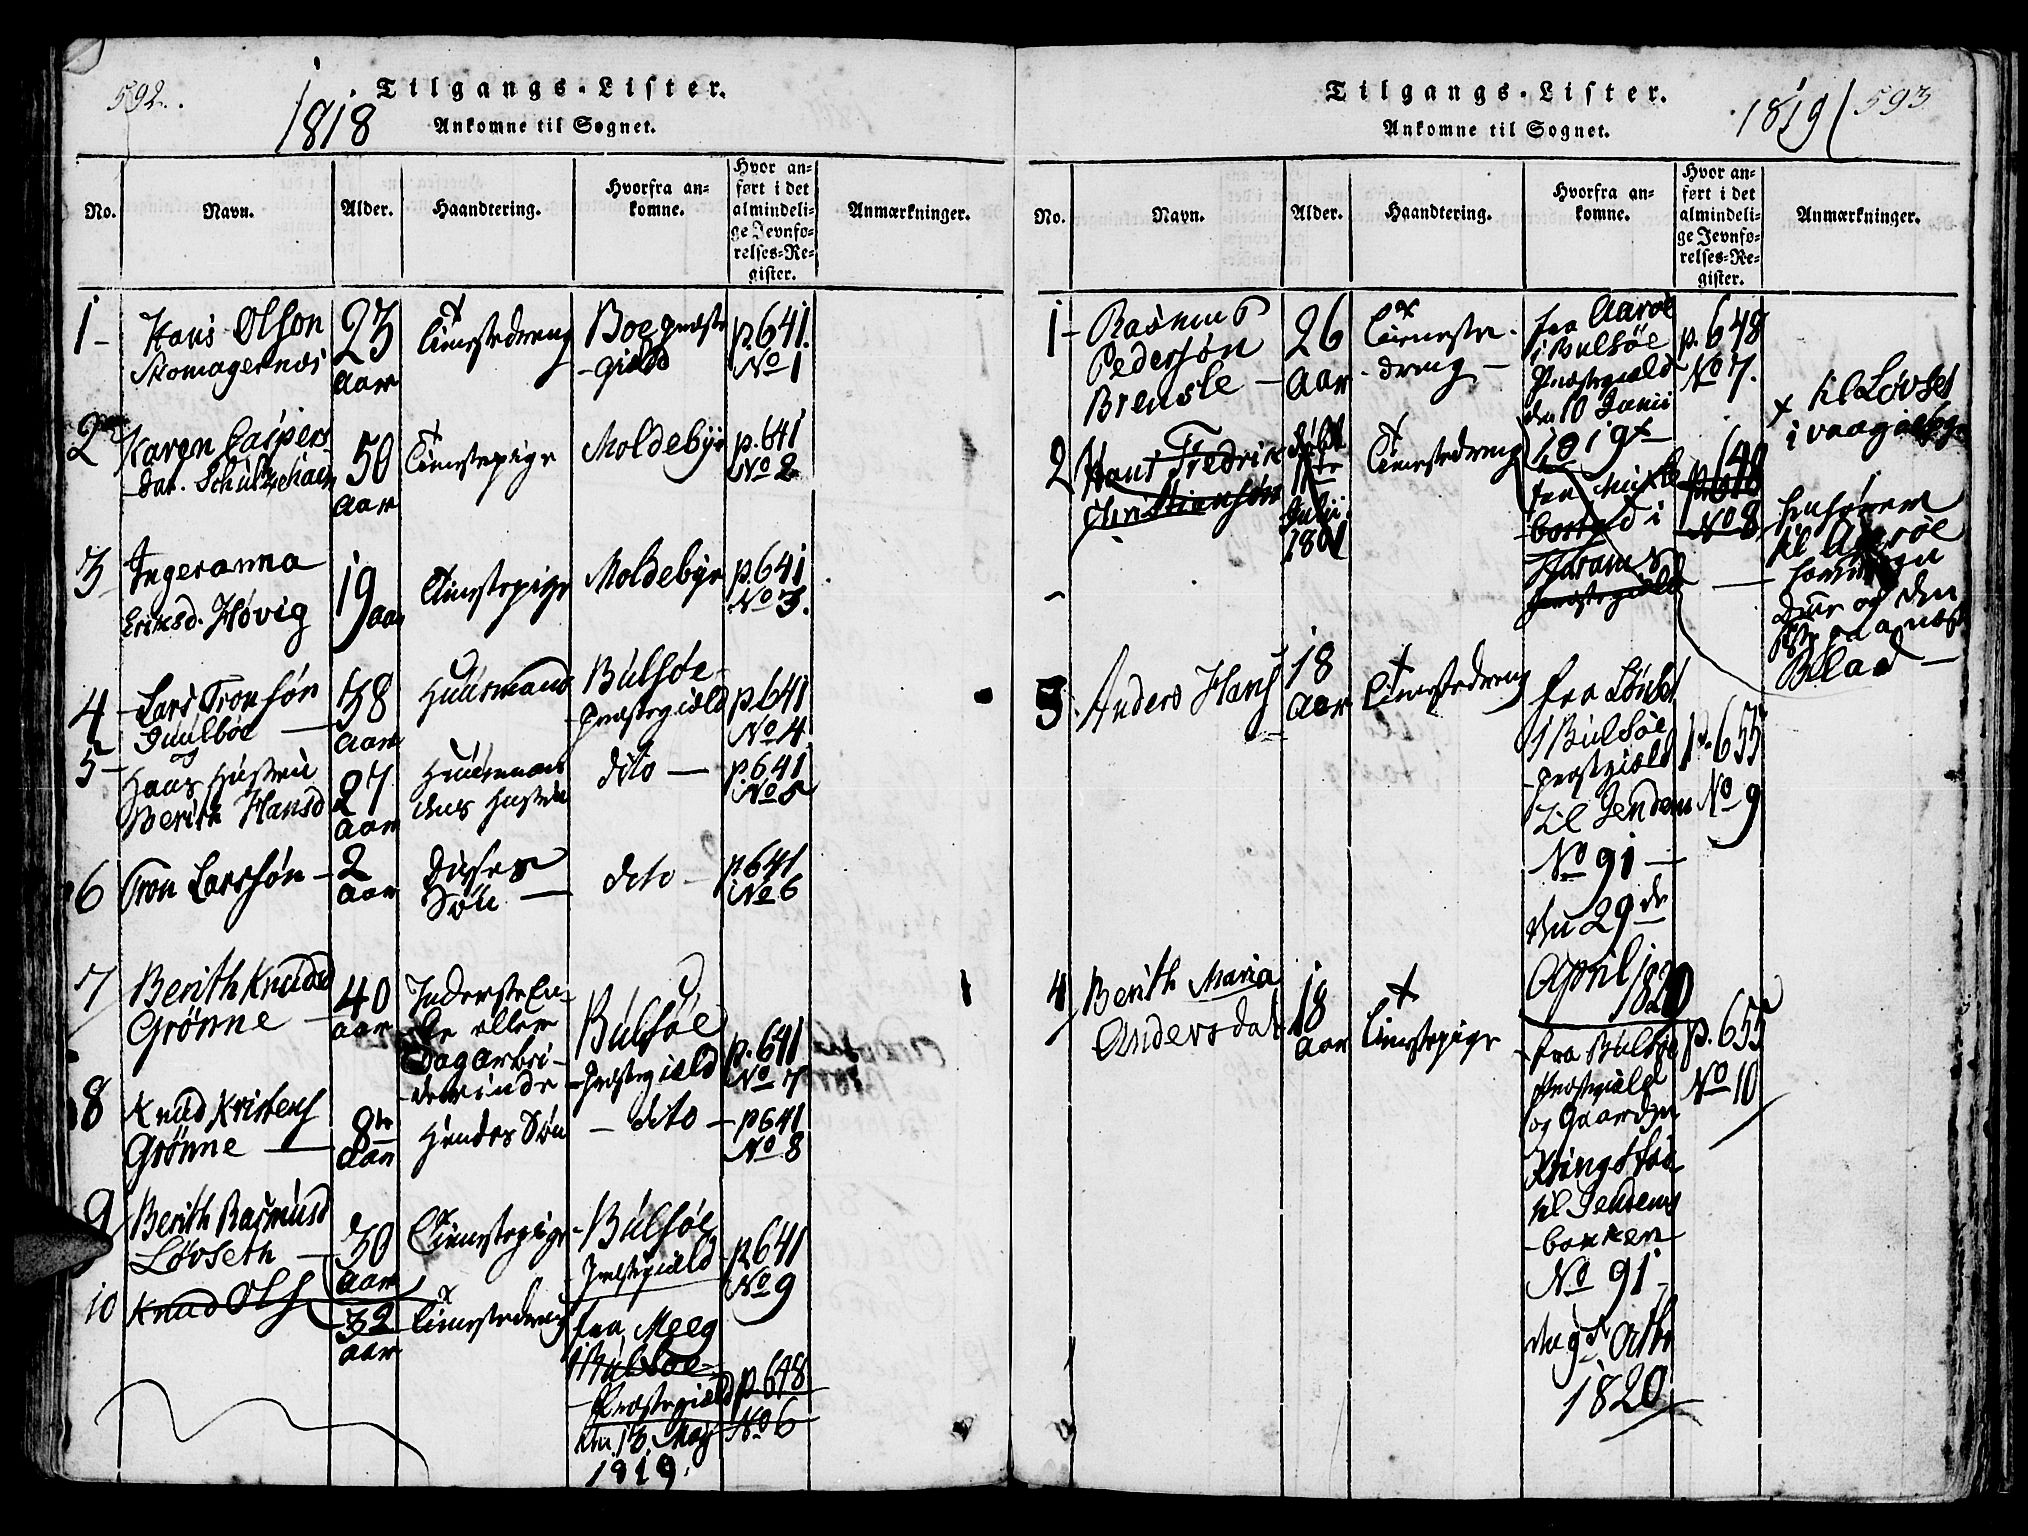 592.
1818
Tilgangs-Lister.
Ankomne til Sognet.
No.
Navn.
Alder.
Haandtering.
Hvorfra an-
komne.
Hvor an-
ført i det
almindeli-
ge Jevnfø-
relses-Re-
gister.
Anmærkninger.
1-
Hans Olson
23
aar
Tienestedreng
Boe præste
-gield
p.641.
No 1
2
Karen Caspers
-dat.
50
aar
Tienestepige
Moldebye
p.641
No 2
3
Ingeranna
Eriksd. Høvig
19 aar
Tienestepige
Moldebye
p.641
No 3.
4
Lars Tronsøn
58
aar
Huusmand
Bulsøe
-præstegield
p.641
No 4
5-
og
Hans Hustru
Berith Hansd
27
aar
Huusman
dens Hustru
dito —
p.641
No 5
6
Tron Larssøn —
2
aar
Disses
Søn —
dito —
p641
No 6
7
Berith Knudsd
Grønne —
40
aar
eller
Dagarbei-
derinde
Bulsøe
-Præstegield
p.641
No 7
8
Knud Kristens
Grønne —
8te
aar
Hendes Søn
— dito —
p641
No 8
9
Berith Rasmusd
Løvseth —
30
aar
Tienestepige
Bulsøe
Præstegield
p641
No 9
10
Knud Ols
32
aar
Tienestedreng
fra Meeg
i Bulsøe
-Præstegield
den 13 May
1819.
p.648
No 6
Tilgangs-Lister.
Ankomne til Sognet.
1819
593
No.
Navn.
Alder.
Haandtering.
Hvorfra an-
komne.
Hvor an-
ført i det
almindeli-
ge Jevnfø-
relses-Re-
gister.
Anmærkninger.
1-
Rasmus
Pedersøn
26
aar
Tieneste-
-dreng —
fra Aarøe
i Bulsøe
Præstegield
den 10 Junii
1819
p.648
No 7.
x til Løvset
i
2
Hans Fredrik
Christiansøn
født
Julii
1801
Tienestedreng
fra
i
Harams
Præstegield
p.648
No 8
til Aarøe
og den
Blad —
3
Anders Hans
18
aar
Tienestedreng
fra
i Bulsøe
-præstgield
til Jendem
No 91 —
den 29de
April 1820
p.655
No 9
4
Berith Maria
Andersdat
18
aar
Tienestepige
fra Bulsøe
Præstgield
og Gaarden
til Jendems
-bakken
No 91
1820
p.655
No 10